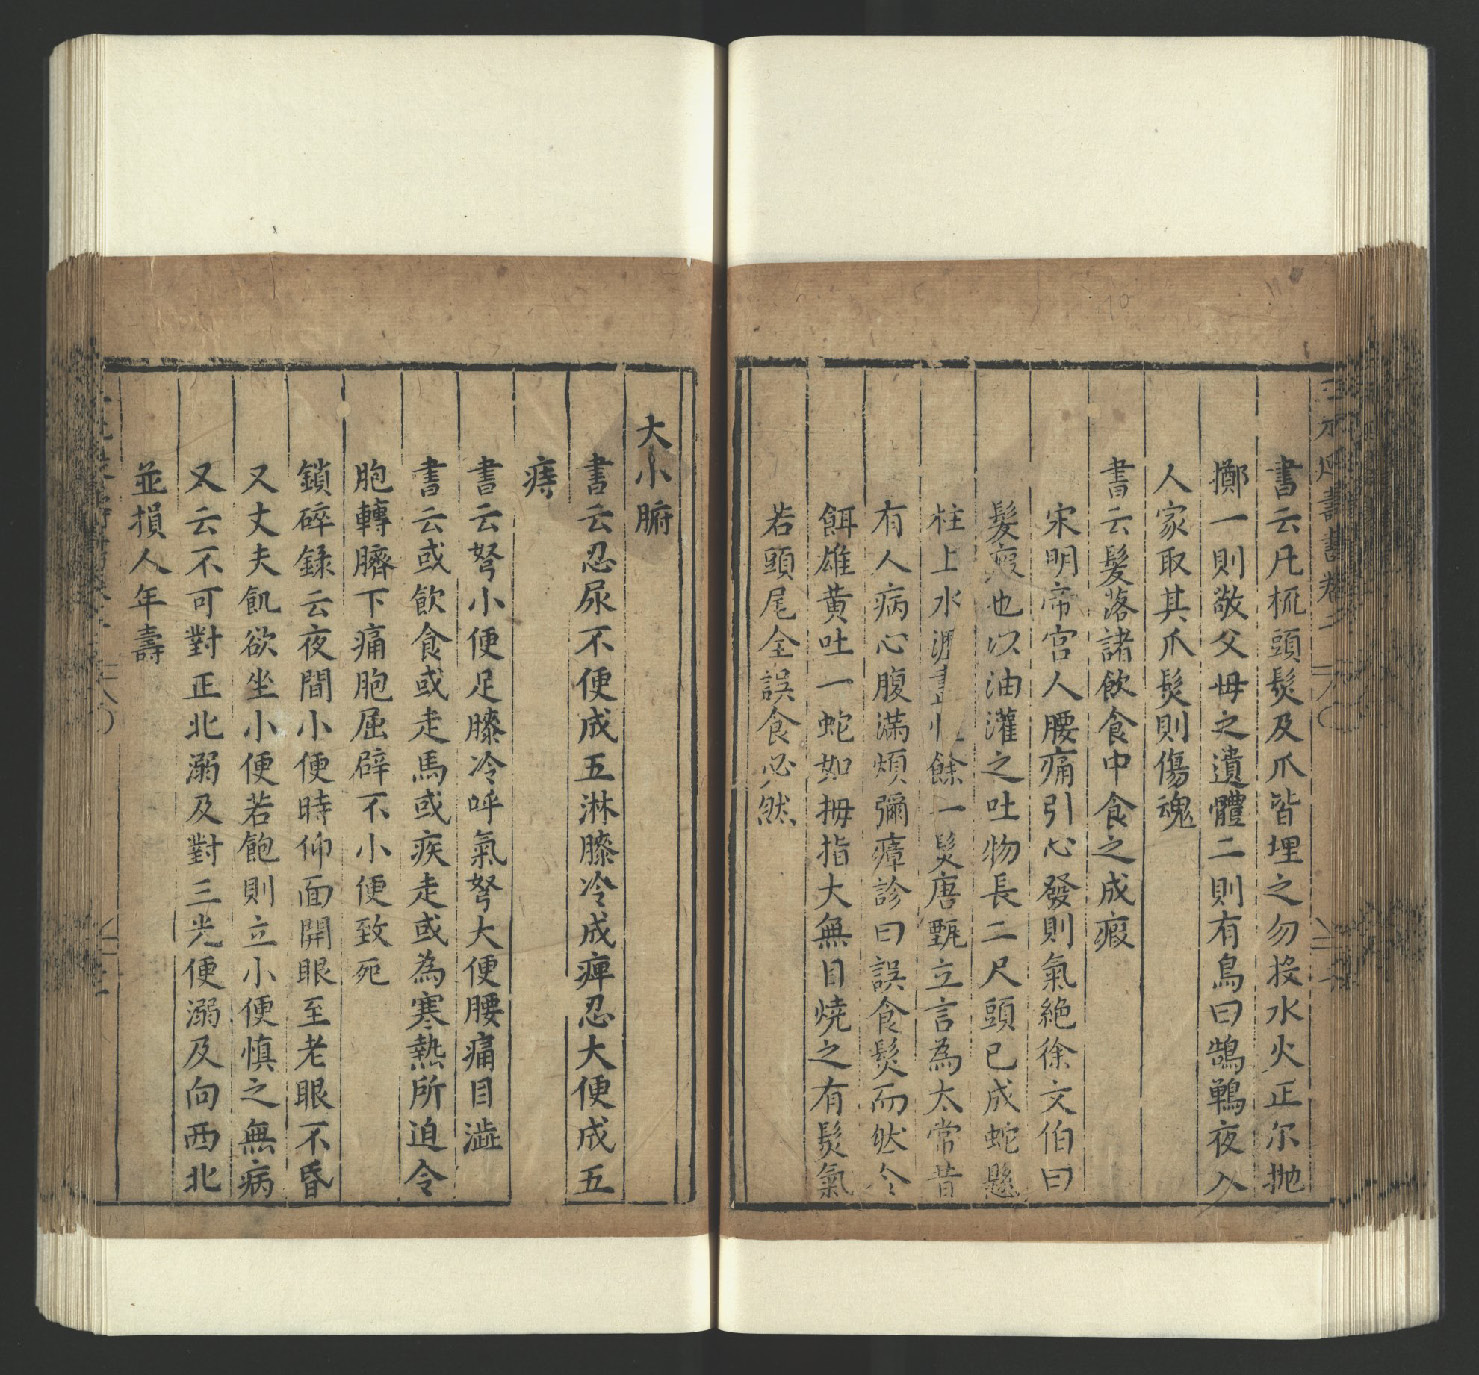 書云凡梳頭髮及爪皆埋之勿投水火正尔抛
擲一則敬父母之遺體二則有鳥曰鵂鶹夜入
人家取其爪髮則傷魂
書云髮落諸飲食中食之成瘕
宋明帝宮人腰痛引心發則氣絶徐文伯曰
髮瘕也以油灌之吐物長二尺頭已成蛇懸
柱上水瀝盡惟餘一髮唐甄立言為太常昔
有人病心腹滿煩彌瘴診曰誤食髮而然令
餌雄黄吐一蛇如拇指大無目燒之有髮氣
若頭尾全誤食必然
大小腑
書云忍尿不便成五淋膝冷成痺忍大便成五
痔
書云弩小便足膝冷呼氣弩大便腰痛目澁
書云或飲食或走馬或疾走或為寒熱所迫令
胞轉臍下痛胞屈辟不小便致死
鎖碎録云夜間小便時仰面開眼至老眼不昏
又丈夫飢欲坐小便若飽則立小便慎之無病
又云不可對正北溺及對三光便溺及向西北
並損人年壽